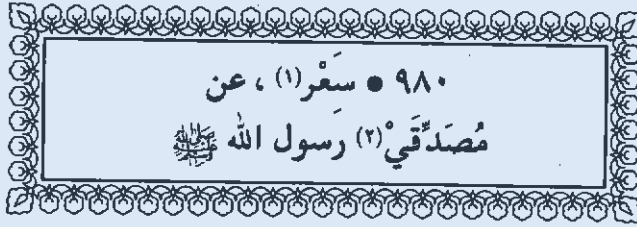 ٩٨٠ • سَعْر(١) ، عن
مُصَدِّقَيْ(٢) رَسول الله ﷺ